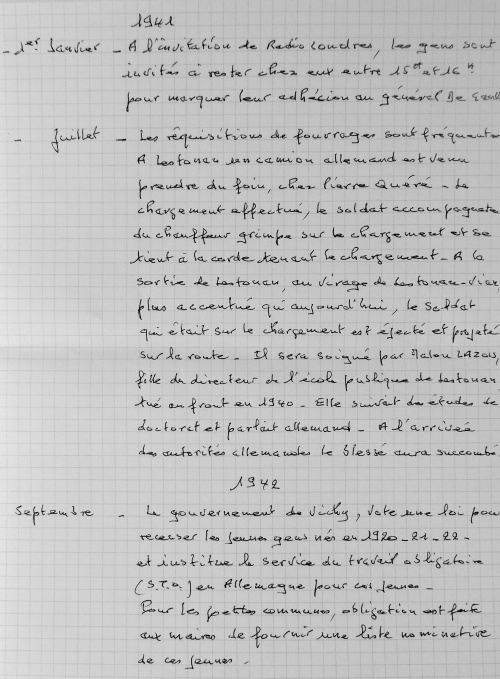 1941
- 1er Janvier - A l'invitation de Radio Londres, les gens sont
invités à rester chez eux entre 15 et 16 h
pour marquer leur adhécion au général De
- Juillet - Les réquisitions de fourrages sont fréquentes
A Lestonan un camion allemand est venu
prendre du foin, chez Pierre Quéré - Le
chargement effectué, le soldat accompagnateur
du chauffeur grimpe sur le chargement et se
tient à la corde tenant le chargement - A la
sortie de Lestonan, au virage de Lestonan-Vian
plus accentué qu'aujourd'hui, le soldat
qui était sur le chargement est éjecté et projeté
sur la route - Il sera soigné par Malou Lazou,
fille du directeur de l'école publique de Lestonan
tué au front en 1940 - Elle suivait des études de
doctorat et parlait allemand - A l'arrivée
des autorités allemandes le blessé aura succombé
1942
Septembre - Le gouvernement de Vichy, vote une loi pour
recenser les jeunes gens nés en 1920-21-22-
et institue le service du travail obligatoire
(S.T.O.) en Allemagne pour ces jeunes -
Pour les petites communes, obligation est faite
aux maires de fournir une liste nominative
de ces jeunes.